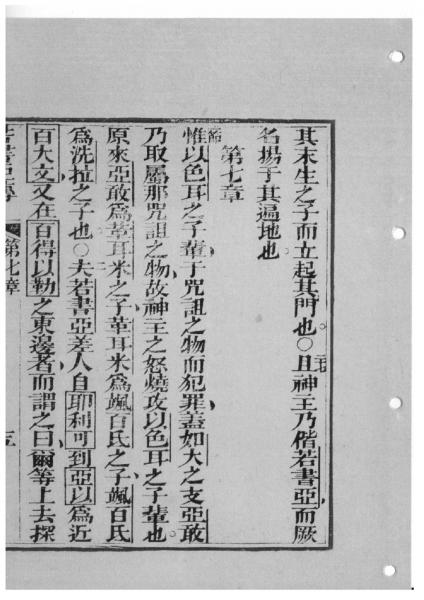 其末生之子而立起其門也○且神主乃偕若書亞而厥
名揚于其遍地也
第七章
惟以色耳之子輩于咒詛之物而犯罪蓋如大之支亞敢
乃取屬那咒詛之物故神主之怒燒攻以色耳之子輩也
原來亞敢為革耳米之子革耳米為颯百氏之子颯百氏
為洗拉之子也○夫若書亞差人自耶利可到亞以為近
百大文又在百得以勒之東邊者而謂之曰爾等上去探
第七章